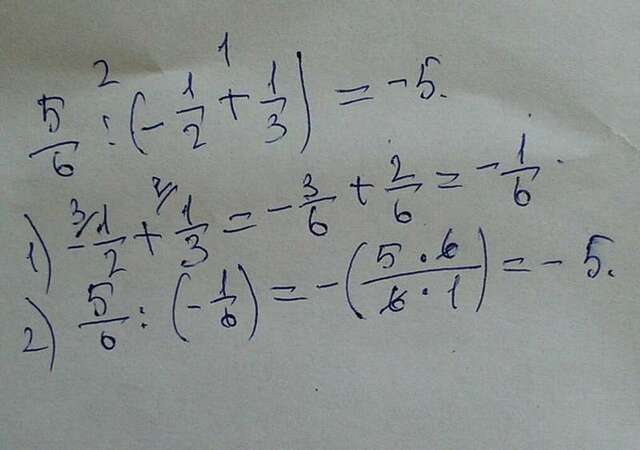 2 1
5/6 : (-1/2 + 1/3) = -5.
1) -³/1/2 + ²/1/3 = -3/6 + 2/6 = -1/6.
2) 5/6 : (-1/6) = -(5·6/6·1) = -5.